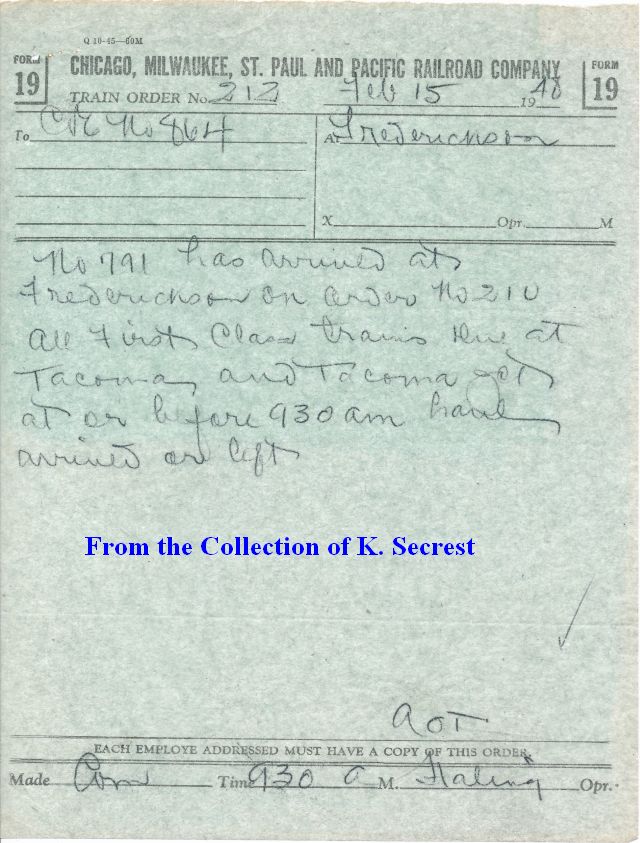 Q 10-45—60M
FORM 19
CHICAGO, MILWAUKEE, ST. PAUL AND PACIFIC RAILROAD COMPANY
FORM 19
TRAIN ORDER No. 212 Feb 15 1948
To C&E No 864
At Frederickson
X Opr. M
No 791 has arrived at
Frederickson on order No 210
All First Class trains due at
Tacoma and Tacoma Jct
at or before 930 am have
arrived or left
From the Collection of K. Secrest
AOT
EACH EMPLOYE ADDRESSED MUST HAVE A COPY OF THIS ORDER.
Made Com Time 930 A M. Opr.